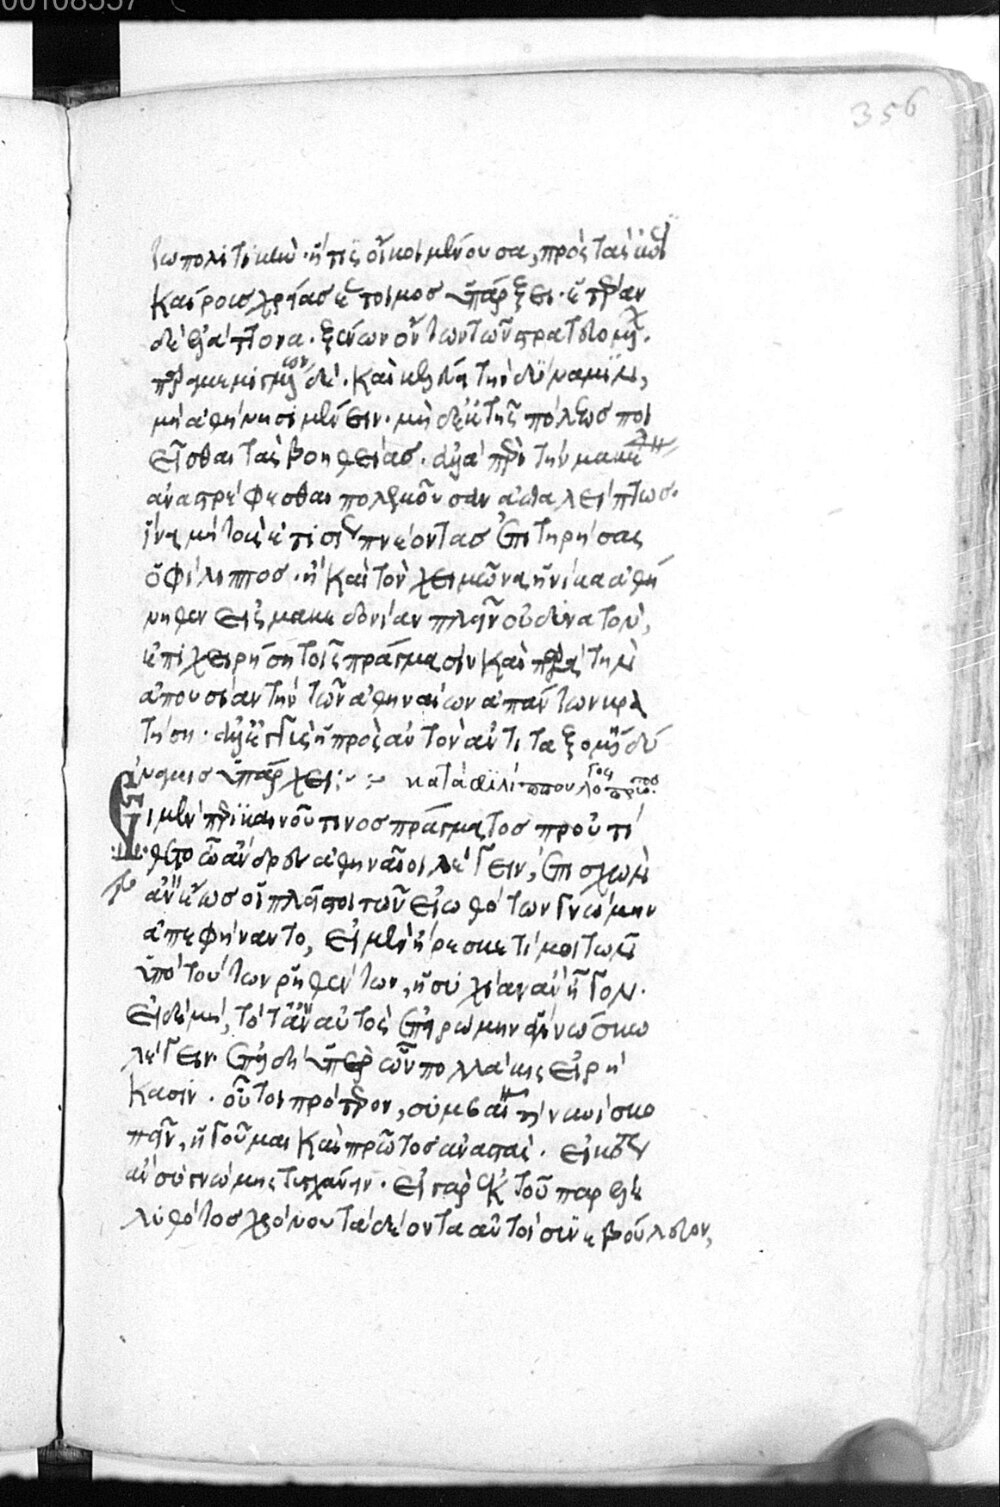 00108557
356
τω πολιτικῶ· ἥτις οἴκοι μένουσα, πρὸς τὰς
καιροὺς χρείας ἕτοιμος ὑπάρξει· ἑτέραν
δὲ ἐλάττονα· ξένων ὄντων τῶν στρατευομένων·
παραμεμιγμένων δέ· καὶ κελεύει τὴν δύναμιν,
μὴ ἀθήνησι μένειν· μὴ δὲ ἐκ τῆς πόλεως ποι
εῖσθαι τὰς βοηθείας· ἀλλὰ περὶ τὴν μακε
ἀναστρέφεσθαι πολεμοῦσαν ἀδιαλείπτως·
ἵνα μὴ τοὺς ἐτησίους πνέοντας ἐπιτηρήσας
ὁ φίλιππος· ἢ καὶ τὸν χειμῶνα, ἡνίκα ἀθή
νηθεν εἰς μακεδονίαν πλεῖν οὐ δυνατὸν,
ἐπιχειρήση τοῖς πράγμασιν καὶ παρὰ τὴν
ἀπουσίαν τὴν τῶν ἀθηναίων ἁπάντων κρα
τήση· ἀλλ' ἐγγὺς ἢ πρὸς αὐτὸν ἀντιταξομένη δύ
ναμις ὑπάρχει:
κατὰ φιλίππου λόγος πρῶτος
Εἰ μὲν περὶ καινοῦ τινος πράγματος προὐτί
θετο ὦ ἄνδρες ἀθηναῖοι λέγειν, ἐπισχὼν
ἂν ἕως οἱ πλεῖστοι τῶν εἰωθότων γνώμην
ἀπεφήναντο, εἰ μὲν ἤρεσκέ τί μοι τῶν
ὑπὸ τούτων ῥηθέντων, ἡσυχίαν ἂν ἦγον·
εἰ δὲ μή, τότ' ἂν αὐτὸς ἐπειρώμην ἃ γινώσκω
λέγειν· ἐπειδὴ ὑπὲρ ὧν πολλάκις εἰρή
κασιν· οὗτοι πρότερον, συμβαίνει νυνὶ σκο
πεῖν, ἡγοῦμαι καὶ πρῶτος ἀναστὰς· εἰκότως
ἂν συγγνώμης τυγχάνειν· εἰ γὰρ ἐκ τοῦ παρελη
λυθότος χρόνου τὰ δέοντα αὐτοὶ συνεβούλευον,